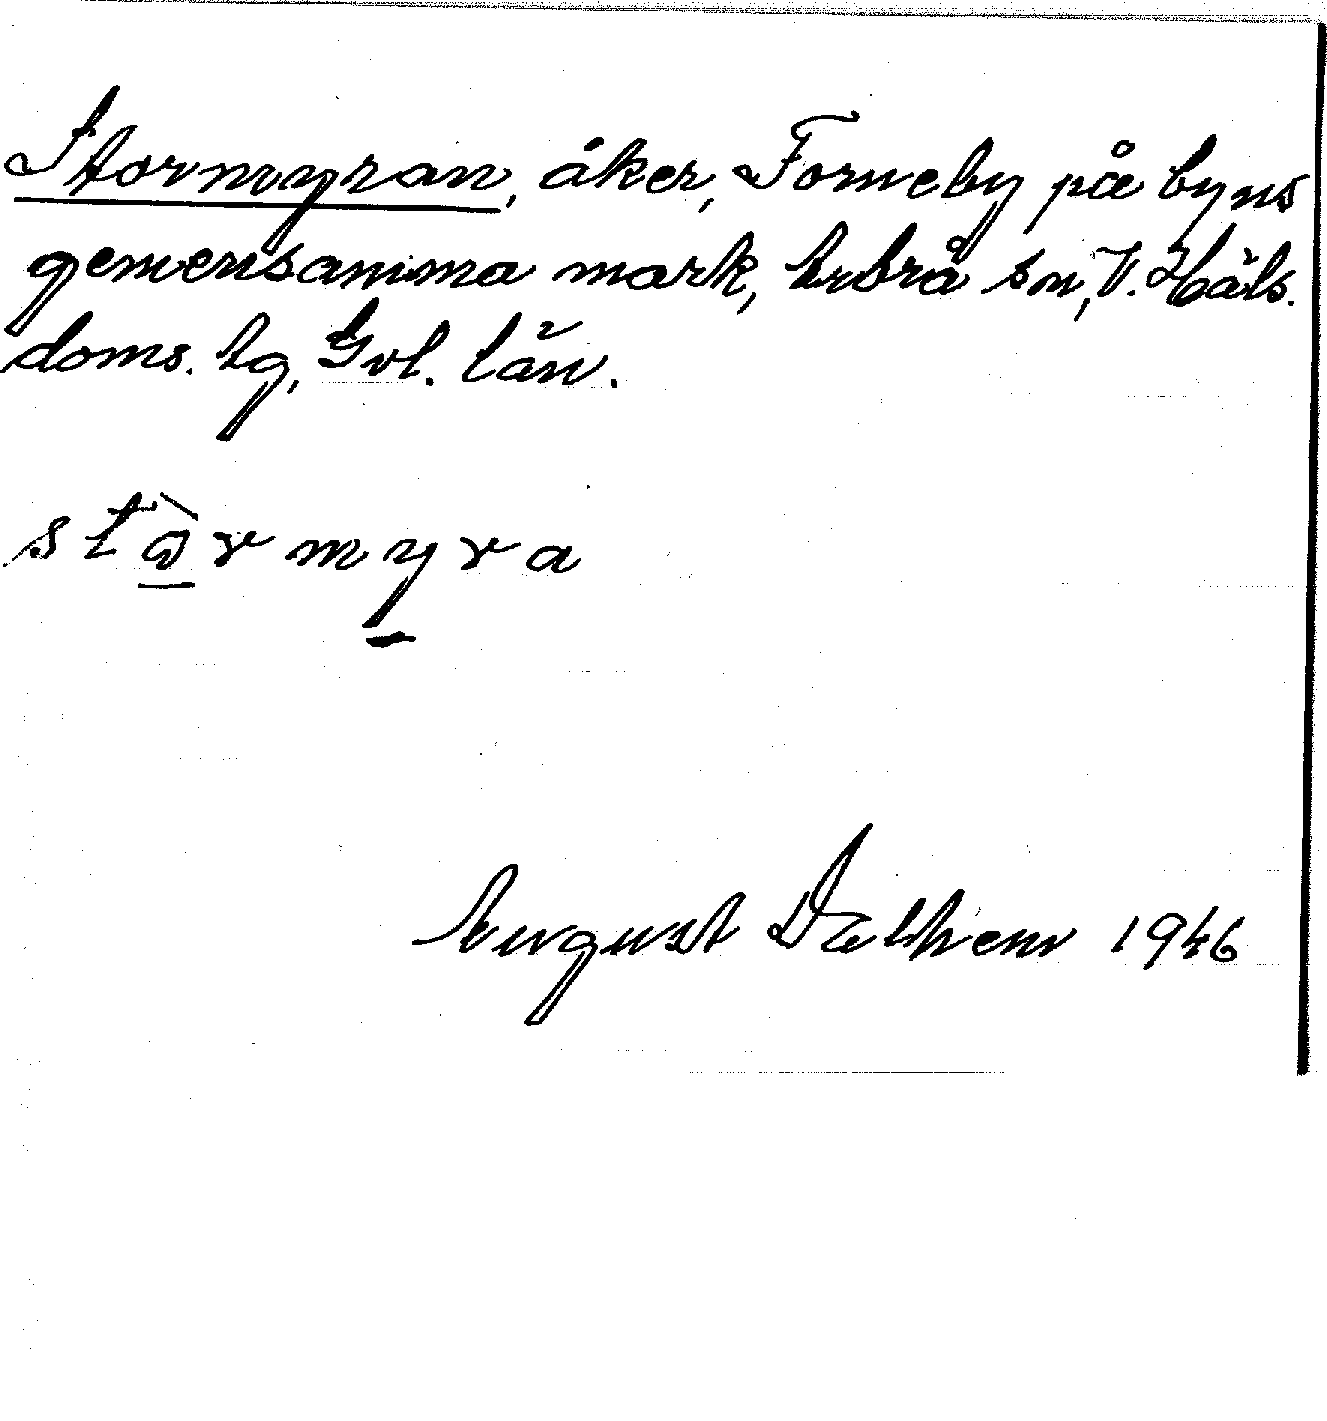 Stormyran, åker, Forneby på byns
gemensamma mark, Arbrå sn, V. Häls.
doms. lg, Gvl. län.
stòrmyra
August Dalhem 1946